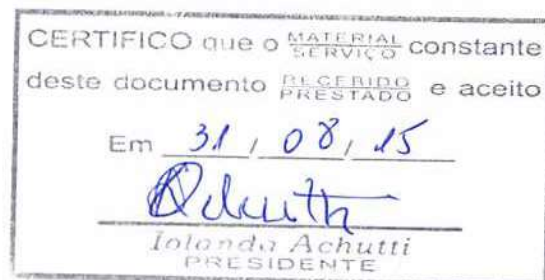 CERTIFICO que o MATERIAL SERVIÇO constante
deste documento RECEBIDO PRESTADO e aceito
Em 31 / 08 / 15
Achutti
Iolanda Achutti
PRESIDENTE